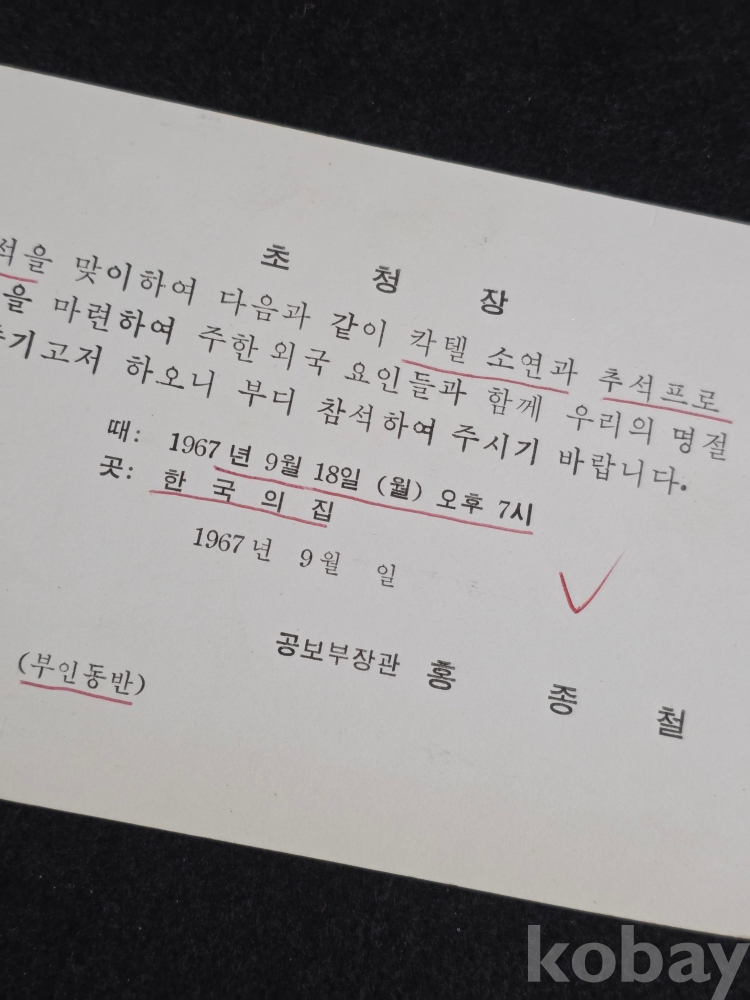 초 청 장
석을 맞이하여 다음과 같이 칵텔 소연과 추석프로
을 마련하여 주한 외국 요인들과 함께 우리의 명절
기고저 하오니 부디 참석하여 주시기 바랍니다.
때: 1967년 9월 18일 (월) 오후 7시
곳: 한 국 의 집
1967년 9월 일
공보부장관 홍 종 철
(부인동반)
kobay